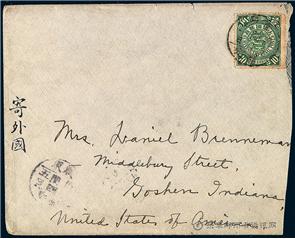 寄外國
Mrs. Daniel Brenneman
Middlebury Street,
Goshen Indiana,
United States of America